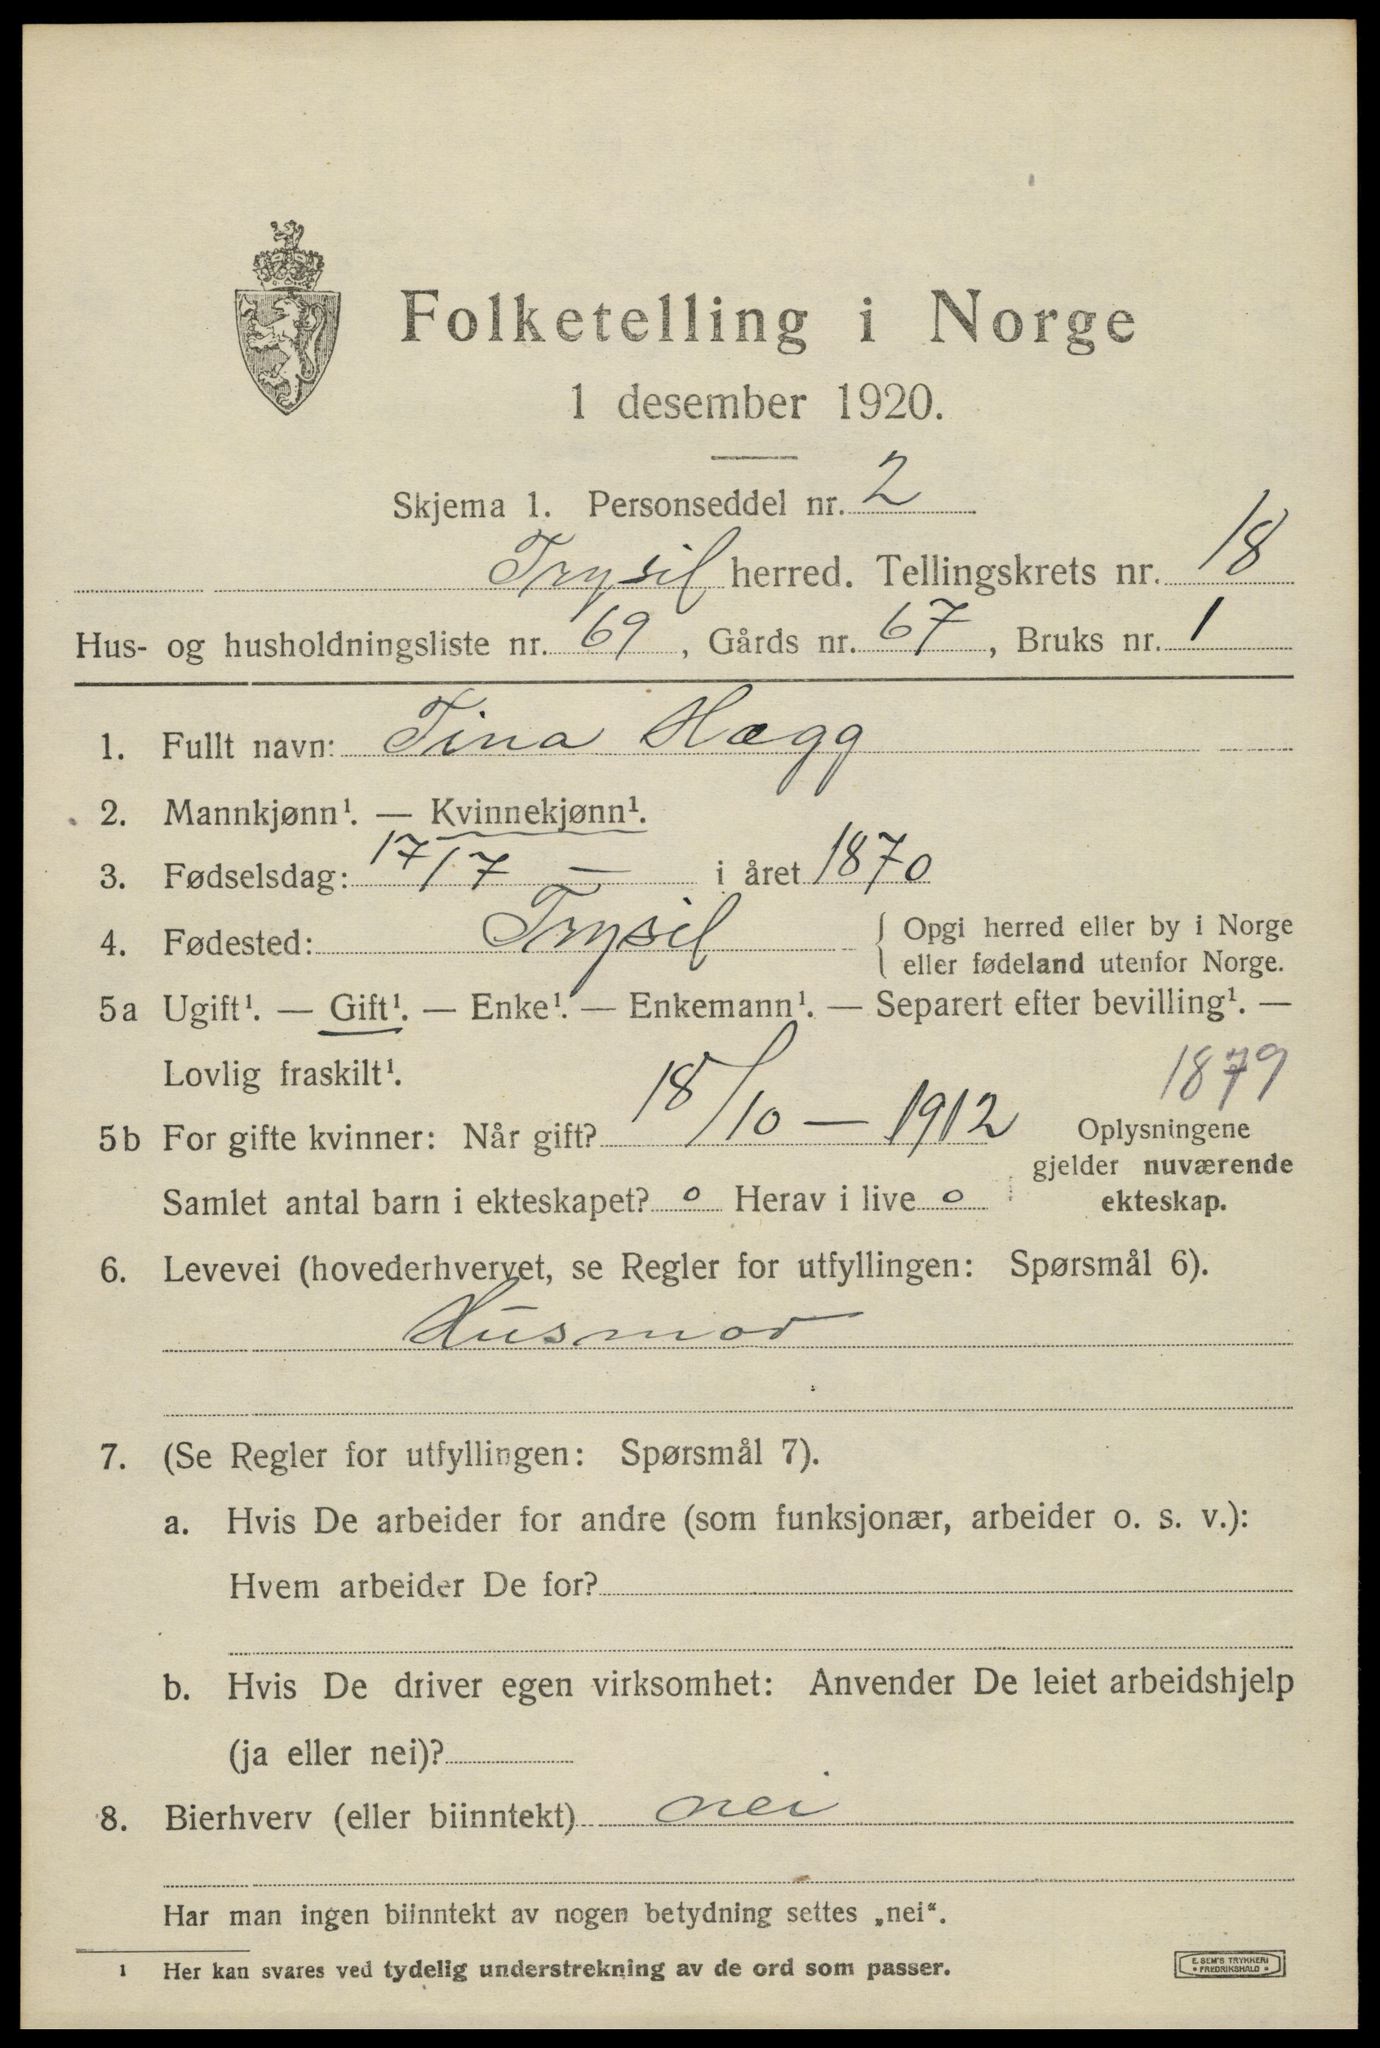 Folketelling i Norge
1 desember 1920.
Skjema 1. Personseddel nr. 2
Trysil herred. Tellingskrets nr. 18
Hus- og husholdningsliste nr. 69, Gårds nr. 67, Bruks nr. 1
1. Fullt navn: Tina Hægg
2. Mannkjønn¹. — Kvinnekjønn¹.
3. Fødselsdag: 17/7 — i året 1870
4. Fødested: Trysil { Opgi herred eller by i Norge
eller fødeland utenfor Norge.
5a Ugift¹. — Gift¹. — Enke¹. — Enkemann¹. — Separert efter bevilling¹. —
Lovlig fraskilt¹.
1879
5b For gifte kvinner: Når gift? 18/10 — 1912
Samlet antal barn i ekteskapet? 0 Herav i live 0
Oplysningene
gjelder nuværende
ekteskap.
6. Levevei (hovederhvervet, se Regler for utfyllingen: Spørsmål 6).
Husmor
7. (Se Regler for utfyllingen: Spørsmål 7).
a. Hvis De arbeider for andre (som funksjonær, arbeider o. s. v.):
Hvem arbeider De for?
b. Hvis De driver egen virksomhet: Anvender De leiet arbeidshjelp
(ja eller nei)?
8. Bierhverv (eller biinntekt) nei
Har man ingen biinntekt av nogen betydning settes „nei“.
1 Her kan svares ved tydelig understrekning av de ord som passer.
E. SEM'S TRYKKERI
FREDRIKSHALD